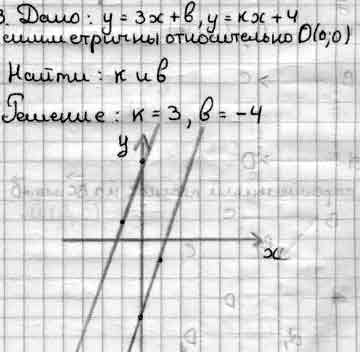 3. Дано: y = 3x + в, y = кx + 4
симметричны относительно O(0;0)
Найти: к и в
Решение: к = 3, в = -4
y
x